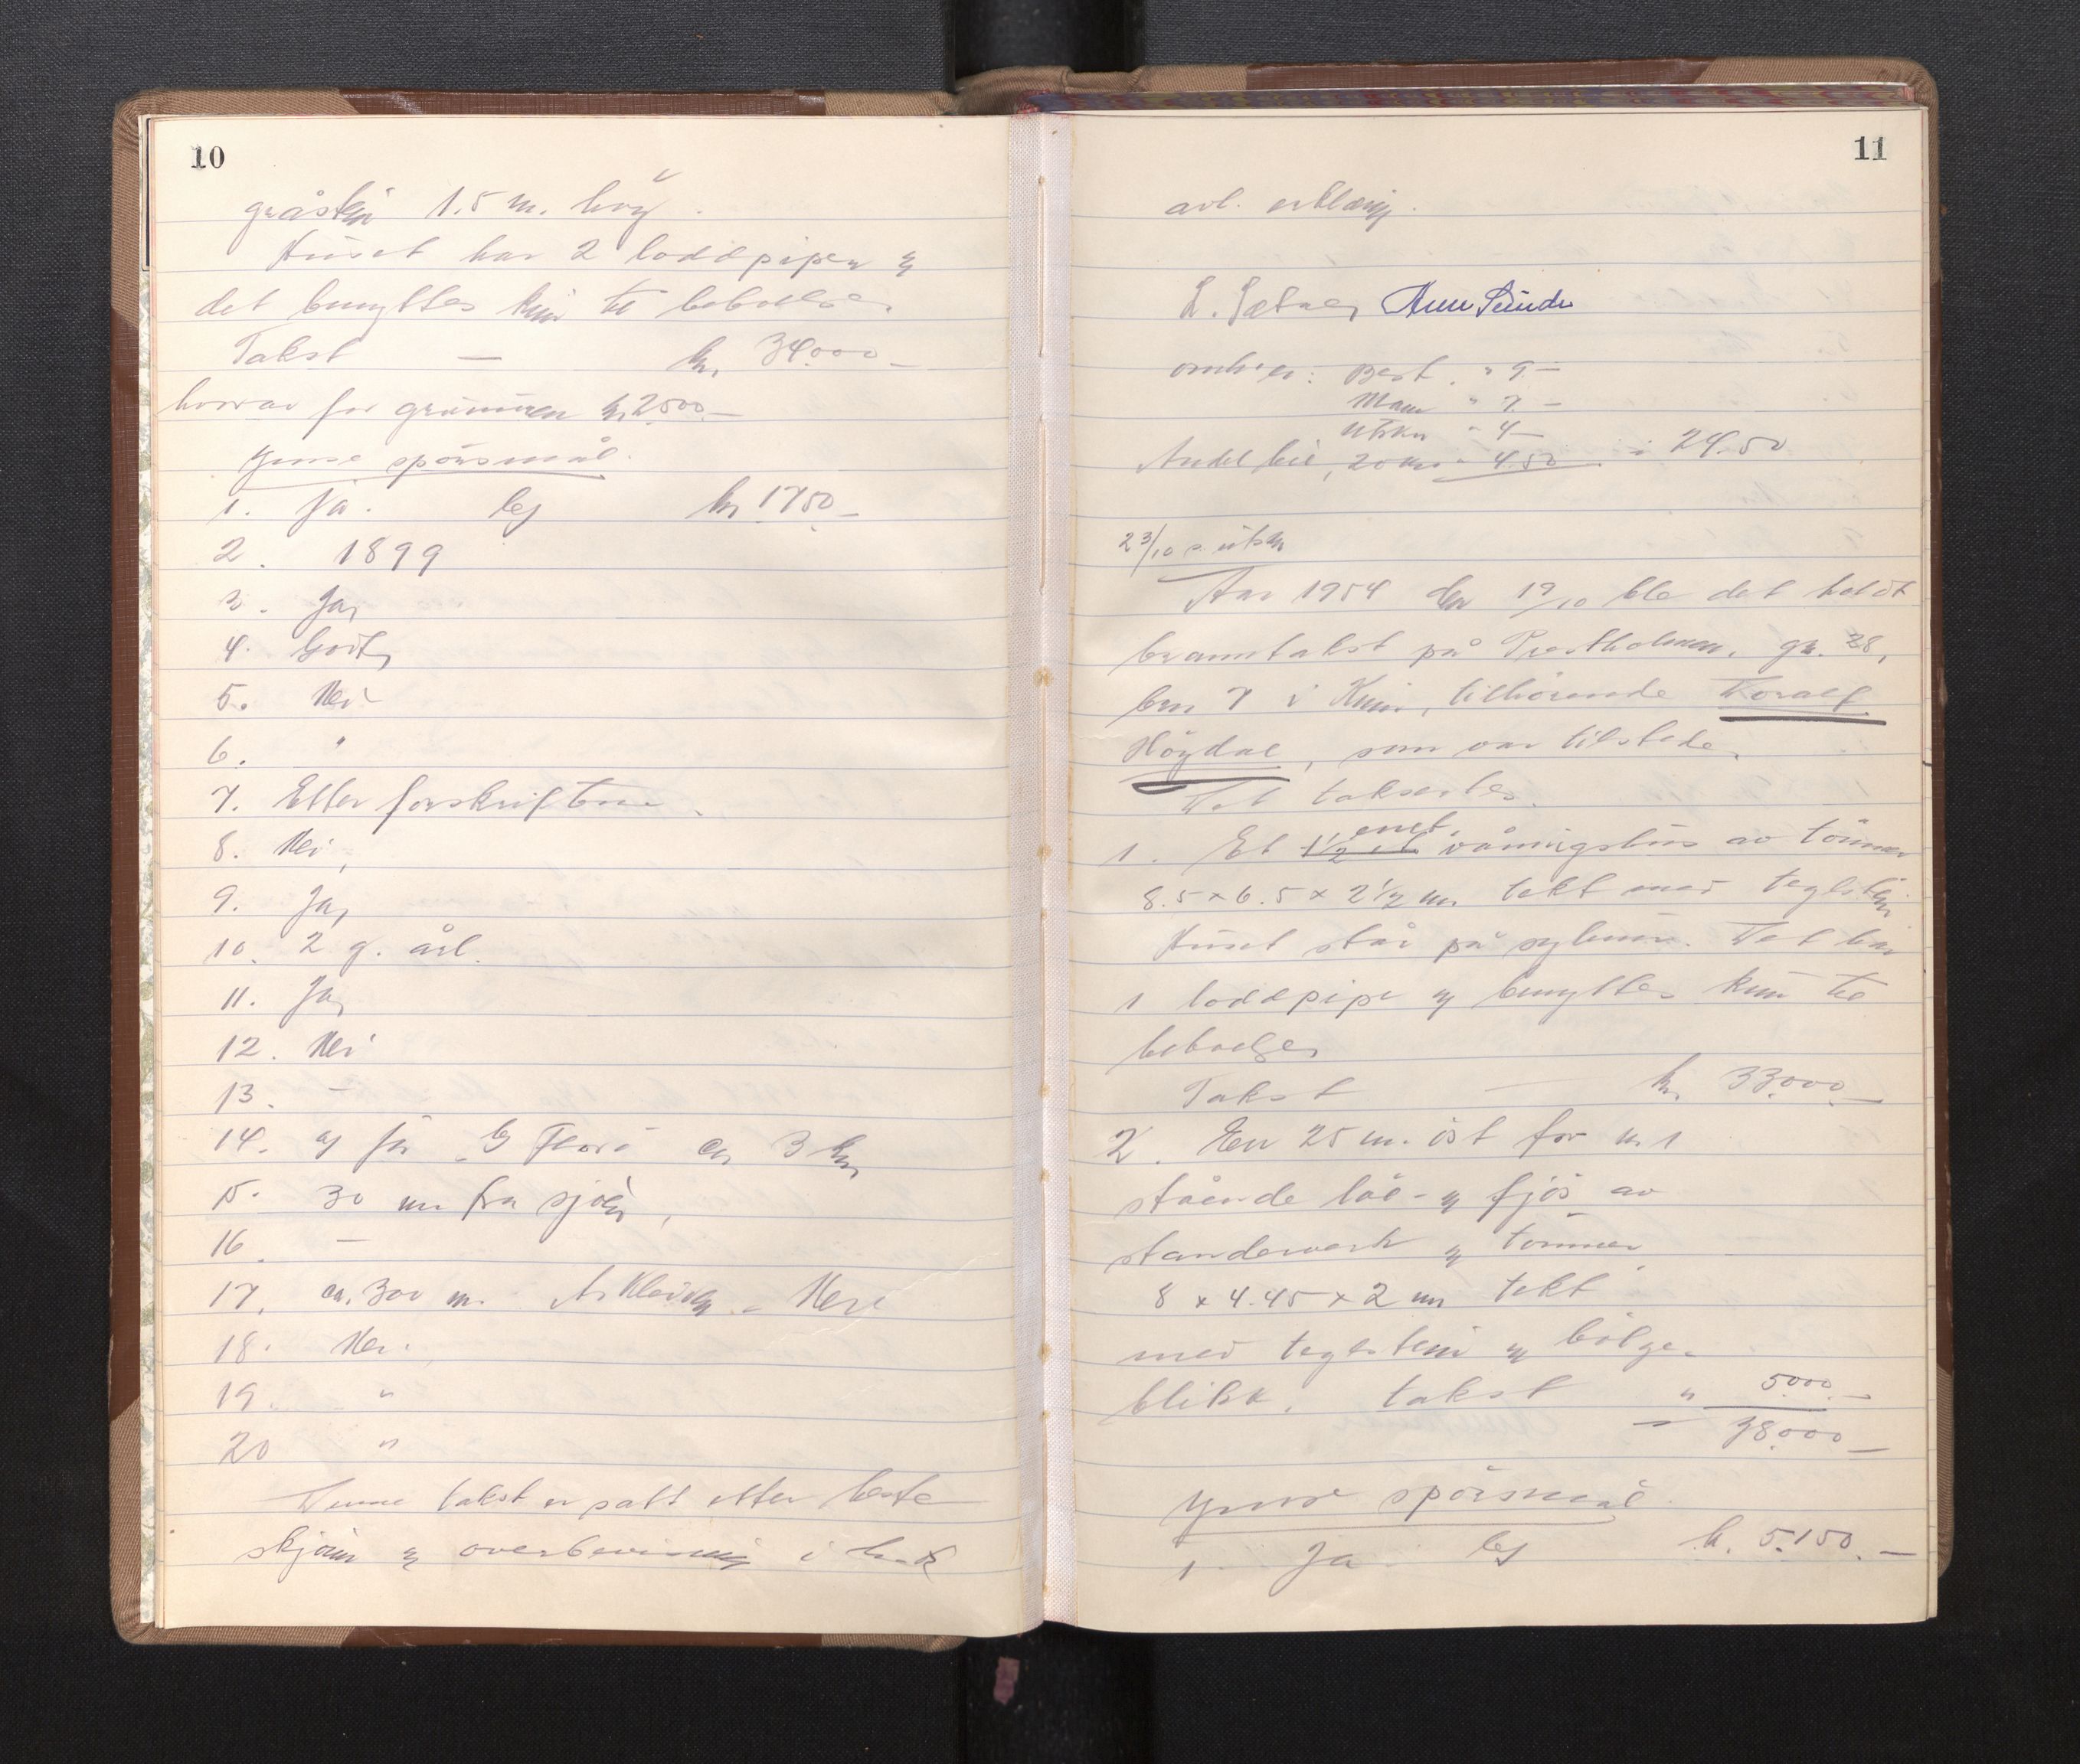 10
gråstein 1.5 m. høy.
Huset har 2 loddpiper og
det benyttes kun til beboelse.
Takst — kr. 34.000 –
hvorav for grunnmuren kr. 2500.–
spørsmål.
1. Ja. kr 1750 –
2. 1899
3. Ja,
4. Godt,
5. Nei
6. "
7. Etter forskriftene.
8. Nei,
9. Ja,
10. 2 g. årl.
11. Ja,
12. Nei
13. –
14. Florö ca 3 km
15. 30 m fra sjøen,
16. –
17. ca. 300 m. Nei
18. Nei.
19. "
20 "
Denne takst er satt etter beste
skjønn og overbevisning i h.t.
11
avl. erklæring.
L. Sætre,
Best. " 9. –
Mann " 7. –
Utskr " 4 –
Andel bil, 20 km " 4.50 = 24.50
23/10 s. utskr
Aar 1954 den 19/10 ble det holdt
branntakst på Prestholmen, gr. 28,
bnr 7 i Kinn, tilhørende Toralf
Høydal, som var tilstede.
Det taksertes.
enet.
1. Et 1½ et. våningshus av tømmer
8.5 x 6.5 x 2½ m. tekt med teglstein
Huset står på sylmur. Det har
1 loddpipe og benyttes kun til
beboelse,
Takst — kr. 33.000. –
2. En 25 m. øst for nr 1
stående løe- og fjøs av
standerverk og tømmer
8 x 4.45 x 2 m tekt
med teglstein og bølge-
blikk. takst " 5.000. –
38.000 –
spørsmål
1. Ja kr. 5.150. –